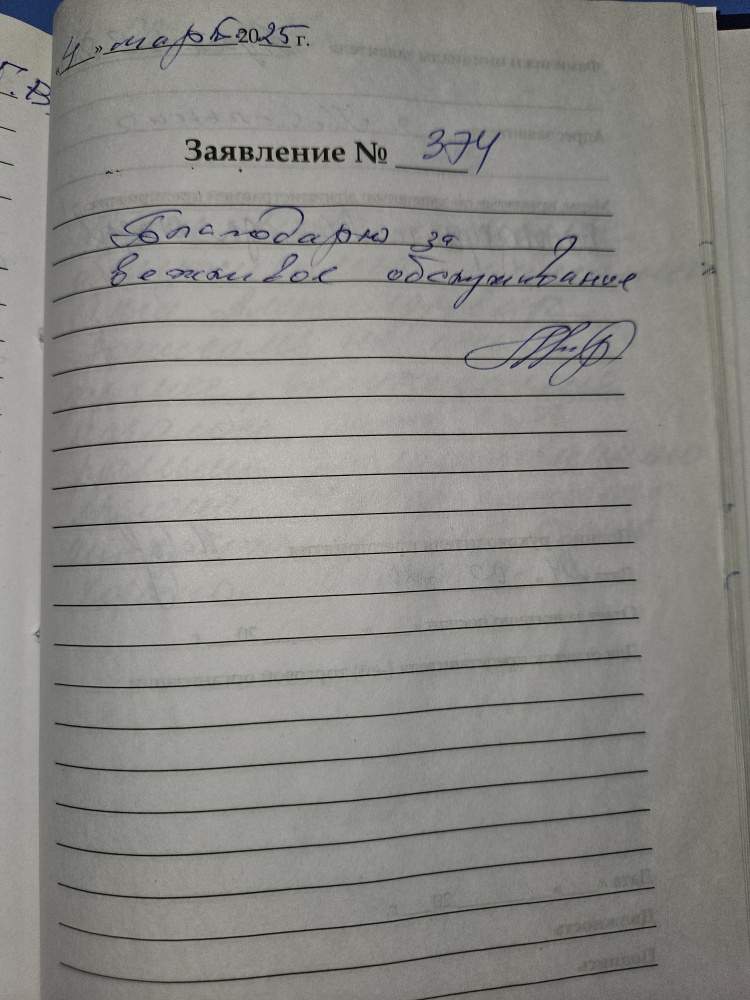 4 » март 2025 г.
Г.В
Заявление № 374
Благодарю за
вежливое обслуживание